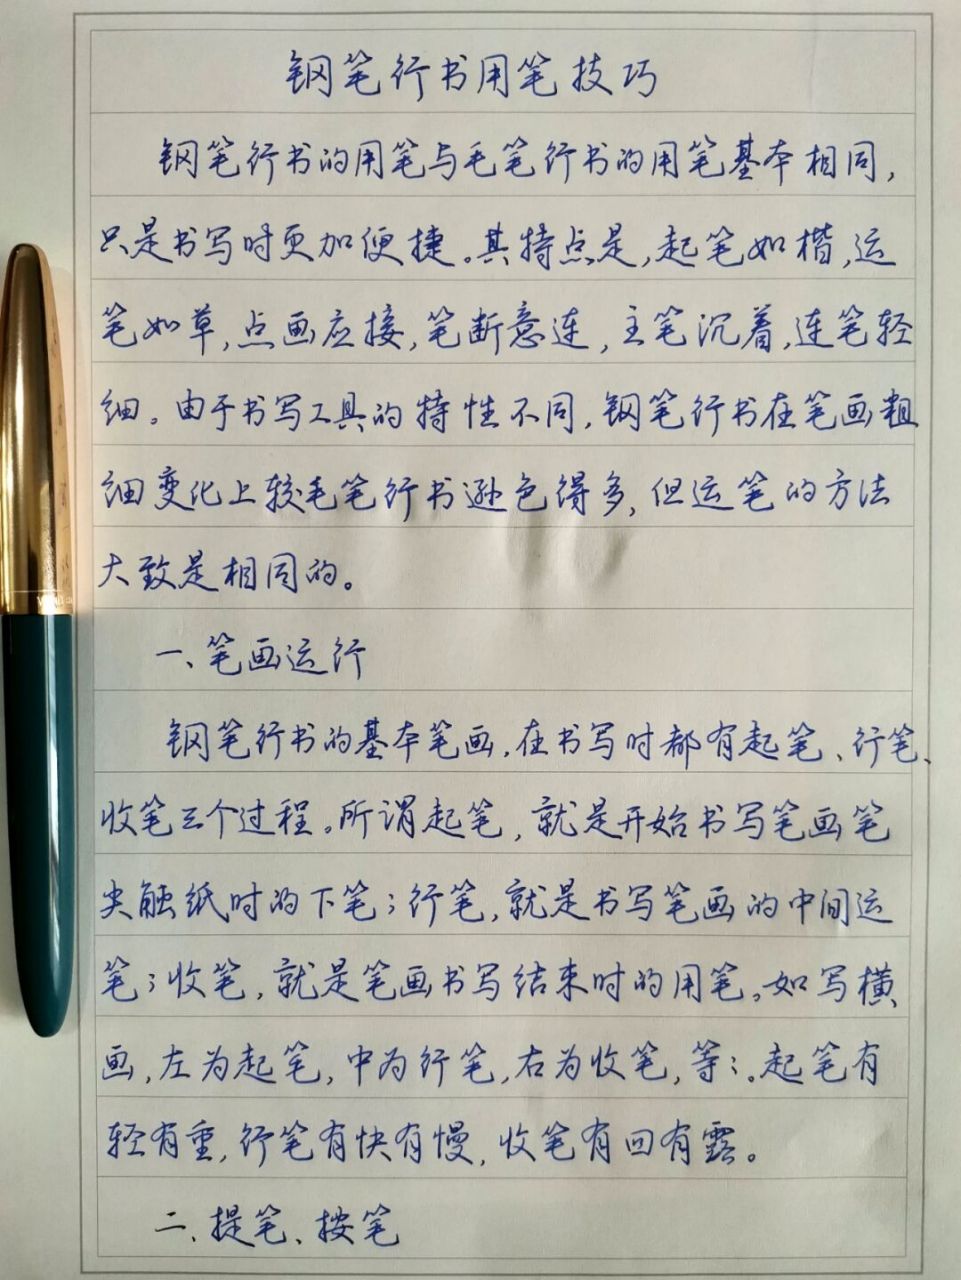 钢笔行书用笔技巧
钢笔行书的用笔与毛笔行书的用笔基本相同,
只是书写时更加便捷。其特点是,起笔如楷,运
笔如草,点画应接,笔断意连,主笔沉着,连笔轻
细。由于书写工具的特性不同,钢笔行书在笔画粗
细变化上较毛笔行书逊色得多,但运笔的方法
大致是相同的。
一、笔画运行
钢笔行书的基本笔画,在书写时都有起笔、行笔、
收笔三个过程。所谓起笔,就是开始书写笔画笔
尖触纸时的下笔;行笔,就是书写笔画的中间运
笔;收笔,就是笔画书写结束时的用笔。如写横
画,左为起笔,中为行笔,右为收笔,等:。起笔有
轻有重,行笔有快有慢,收笔有回有露。
二、提笔、按笔